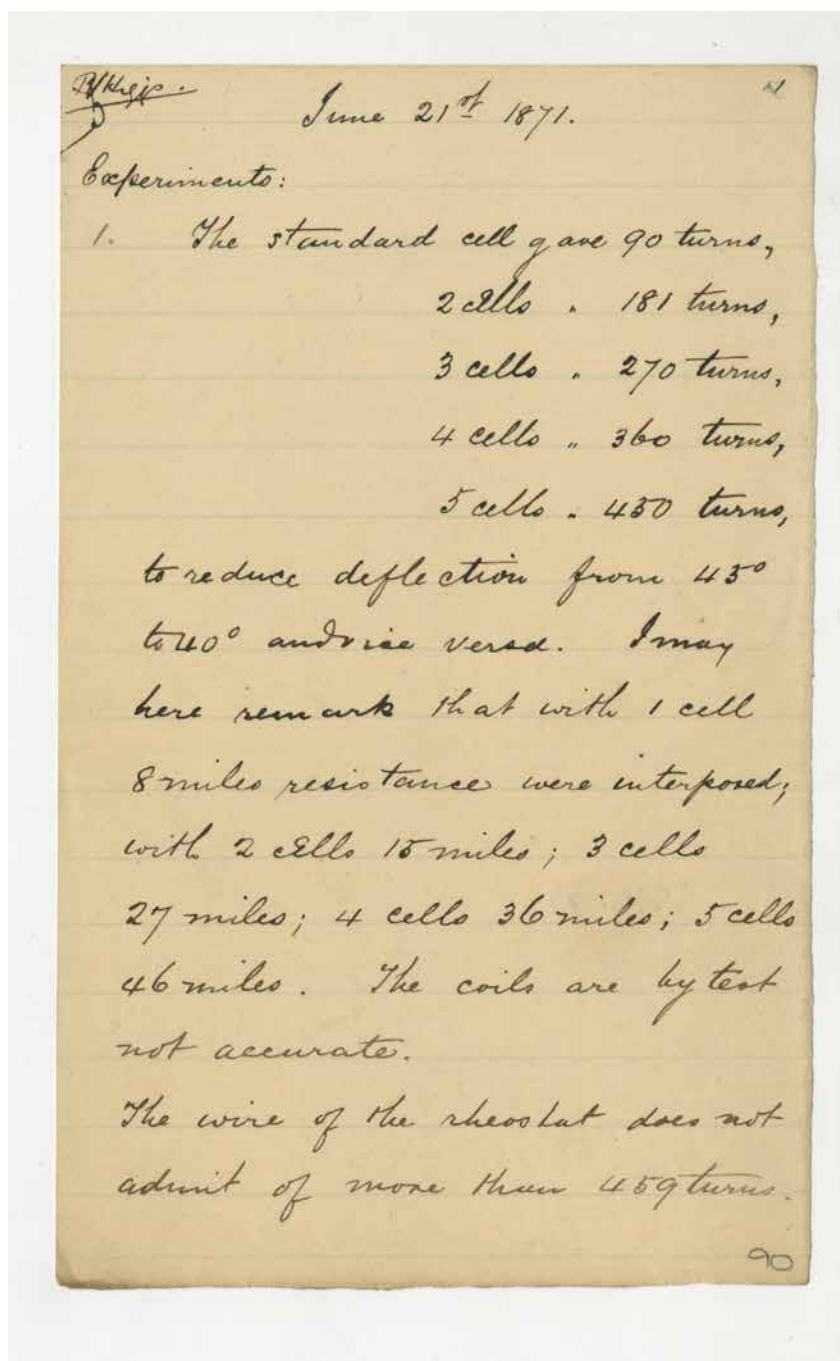 June 21st 1871.
Experiments:
1. The standard cell gave 90 turns,
2 cells " 181 turns,
3 cells " 270 turns,
4 cells " 360 turns,
5 cells " 450 turns,
to reduce deflection from 45°
to 40° and vice versa. I may
here remark that with 1 cell
8 miles resistance were interposed;
with 2 cells 15 miles; 3 cells
27 miles; 4 cells 36 miles; 5 cells
46 miles. The coils are by test
not accurate.
The wire of the rheostat does not
admit of more than 459 turns.
90